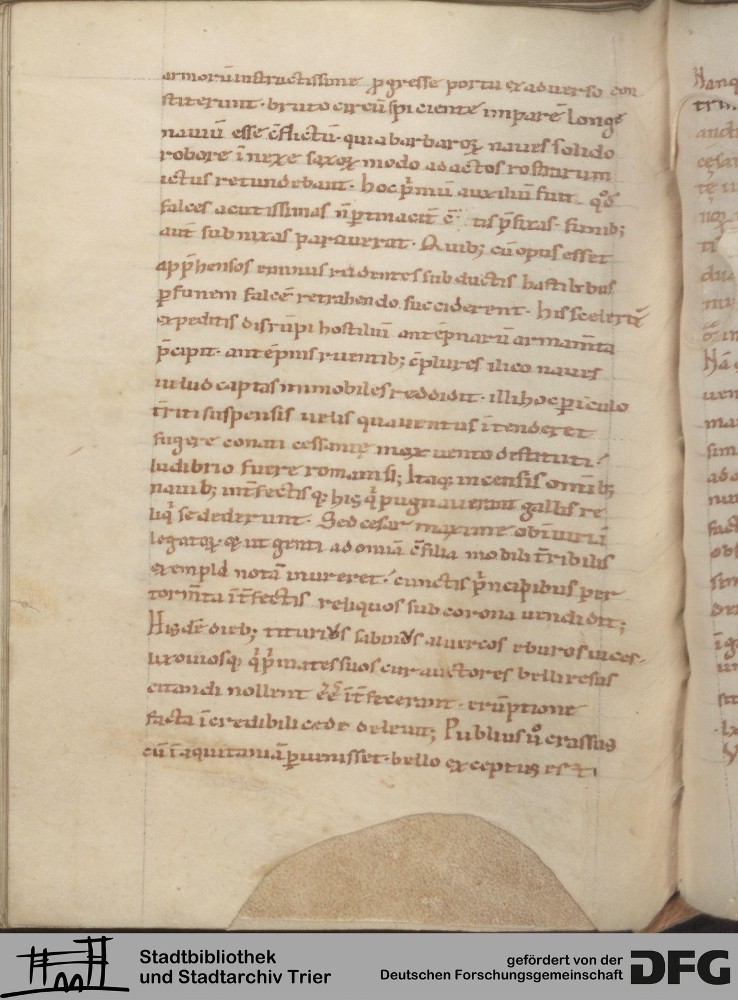 armorū instructissime ꝓgresse portu ex aduerso con
stiterunt. bruto circūspiciente imparē longe
nauiū esse c̄flictū. quia barbaroꝝ naues solido
robore īnexe saxoꝝ modo adactos rostrarum
ictus retundebant. hoc p̄mū auxiliū fuit qđ
falces acutissimas n̄ ptinacit̄ tis p̄fixas. funib;
aut̄ subnixas parauerat. Quib; cū opus esset
app̄hensos eminus rudentes subductis hastilibus
ꝑ funem falcē retrahendo succiderent. his scelerit̄
expeditis disrūpi hostiliū antēpnarū armam̄ta
p̄cipit. antēpnis ruentib; c̄plures ilico naues
uelud captas immobiles reddidit. illi hoc ꝑiculo
t̄riti suspensis uelis qua uentus ītenderet
fugere conati cessante mox uento destituti
ludibrio fuere romanis; Itaq; incensis omīb;
nauib; int̄fectis q; his q̇ pugnauerant gallis re
liq̇ se dederunt. Sed cesar maxime ob iniuriā
legatoꝝ. & ut genti ad omnia c̄silia mobili t̄ribilis
exempli notā inureret. cunctis p̄ncipibus per
torm̄ta īt̄fectis reliquos sub corona uendidit;
Hisdē dieb; titurius sabinus aluercos eburos uices
lixouiosq; q̇ p̄mates suos cur auctores belli resus
citandi nollent ēē īt̄fecerant. erūptione
facta īcredibili cede deleuit; Publius ů crassus
cū ī aquitaniā ꝑuenisset. bello exceptus est
Stadtbibliothek
und Stadtarchiv Trier
gefördert von der
Deutschen Forschungsgemeinschaft
DFG